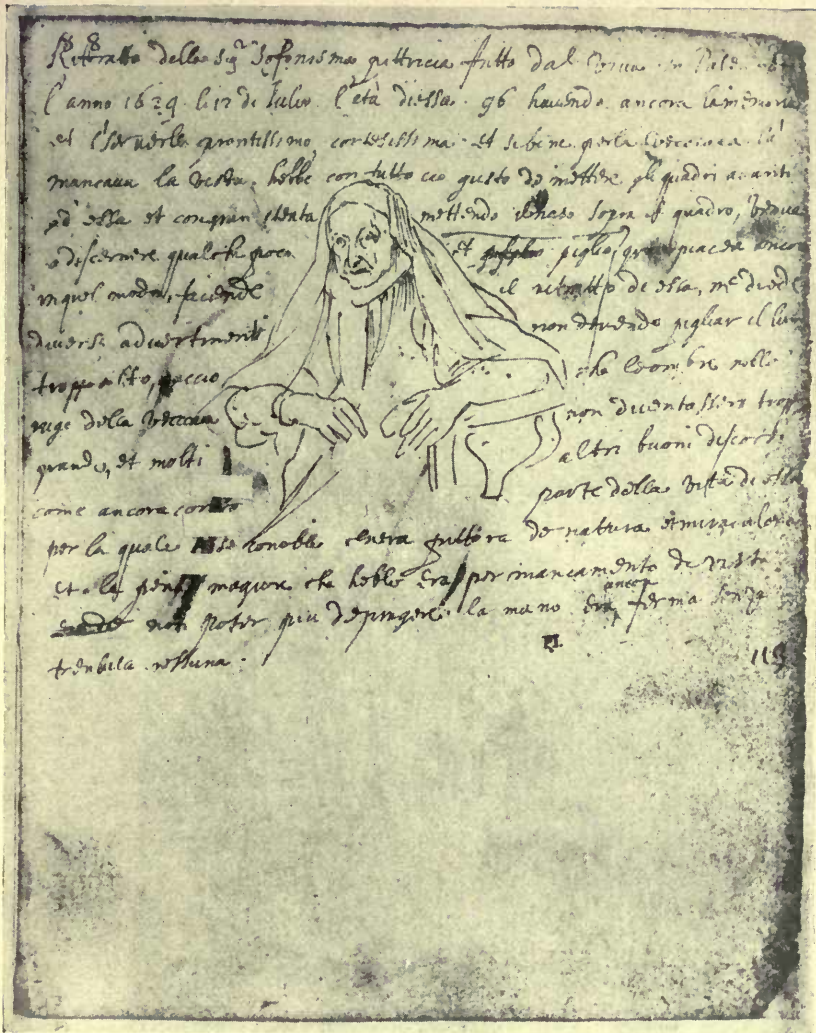 Rittratto della Sigra Sofonisma pittricia fatto dal vivo in Palermo
l'anno 1624 li 12 di Julio l'età di essa 96 havendo ancora la memoria
et il serverllo prontissimo, cortesissima et sibene per la vecciaia la
mancava la vista, hebbe con tutto cio gusto de mettere gli quadri avanti
ad essa et con gran stenta mettendo il naso sopra il quadro, veniva
a discernere qualche poco et piglio gran piacere ancora
in quel modo, facendo il ritratto de essa, me diede
diversi advertimenti non dovendo pigliar il lume
troppo alto, accio che le ombre nelle
ruge della vecciaia non diventassero troppo
grande, et molti altri buoni discorsi
come ancora conto parte della vita di essa
per la quale se conobbe ch'era pittora de natura et miraculosa
et la pena magiore che hebbe era per mancamento di vista
non poter piu depingere. la mano era ancora ferma senza
tremula nessuna.
115